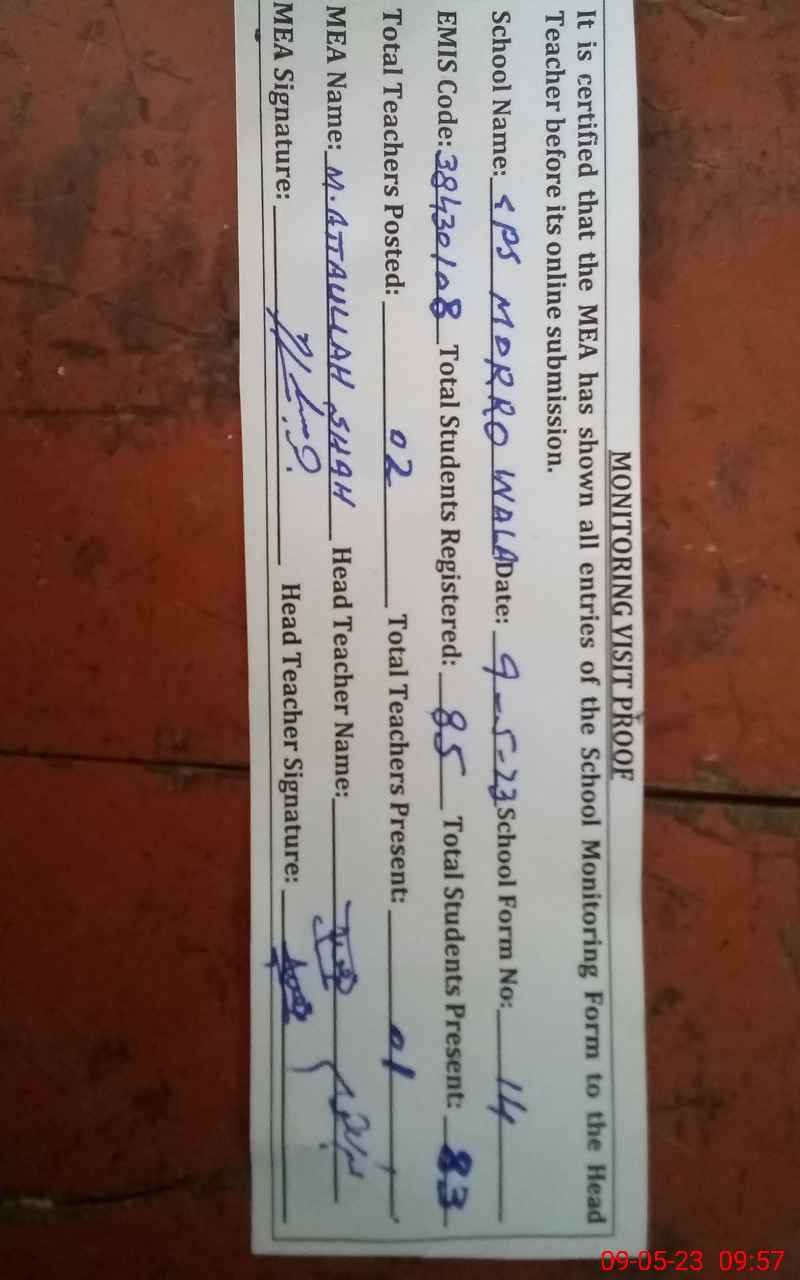 MONITORING VISIT PROOF
It is certified that the MEA has shown all entries of the School Monitoring Form to the Head
Teacher before its online submission.
School Name: GPS MORRO WALA Date: 9-5-23 School Form No: 14
EMIS Code: 38430108 Total Students Registered: 85 Total Students Present: 83
Total Teachers Posted: 02 Total Teachers Present: 01
MEA Name: M. ATTAULLAH SHAH Head Teacher Name:
MEA Signature: Head Teacher Signature:
09-05-23 09:57